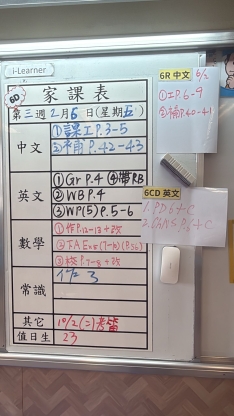 i-Learner
6D
家課表
第三週2月6日(星期五)
中文
①課工P.3-5
②補P.42-43
英文
①Gr P.4 ④帶RB
②WB P.4
③WP(5) P.5-6
數學
①作P.12-13+改
③校P.7-8+改
常識
作3
其它
10/2(二)考笛
值日生
23
6R 中文 6/2
①工P.6-9
②補P.40-41
6CD 英文
1. PD6+C